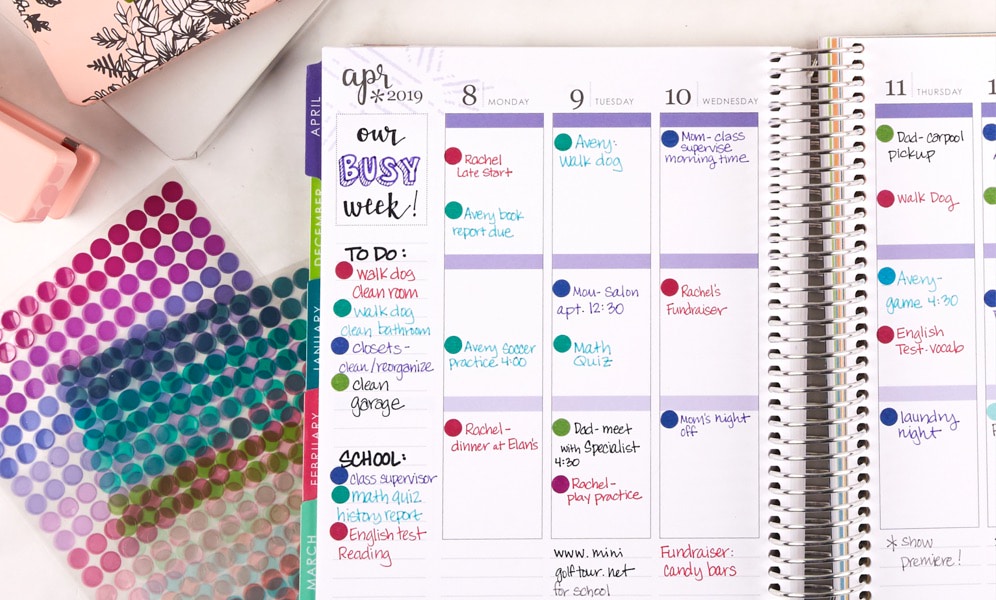 apr
*2019
our
BUSY
week!
TO DO:
walk dog
clean room
walk dog
clean bathroom
closets-
clean/reorganize
clean
garage
SCHOOL:
class supervisor
math quiz
history report
English test
Reading
APRIL
DECEMBER
JANUARY
FEBRUARY
MARCH
8 MONDAY
Rachel
Late start
Avery book
report due
Avery soccer
practice 4:00
Rachel-
dinner at Elan's
9 TUESDAY
Avery-
walk dog
Mom-Salon
apt. 12:30
Math
Quiz
Dad-meet
with Specialist
4:30
Rachel-
play practice
www.mini
golftour.net
for school
10 WEDNESDAY
Mom-class
supervise
morning time
Rachel's
Fundraiser
Mom's night
off
Fundraiser:
candy bars
11 THURSDAY
Dad-carpool
pickup
Walk Dog
Avery-
game 4:30
English
Test-vocab
laundry
night
* Show
premiere!